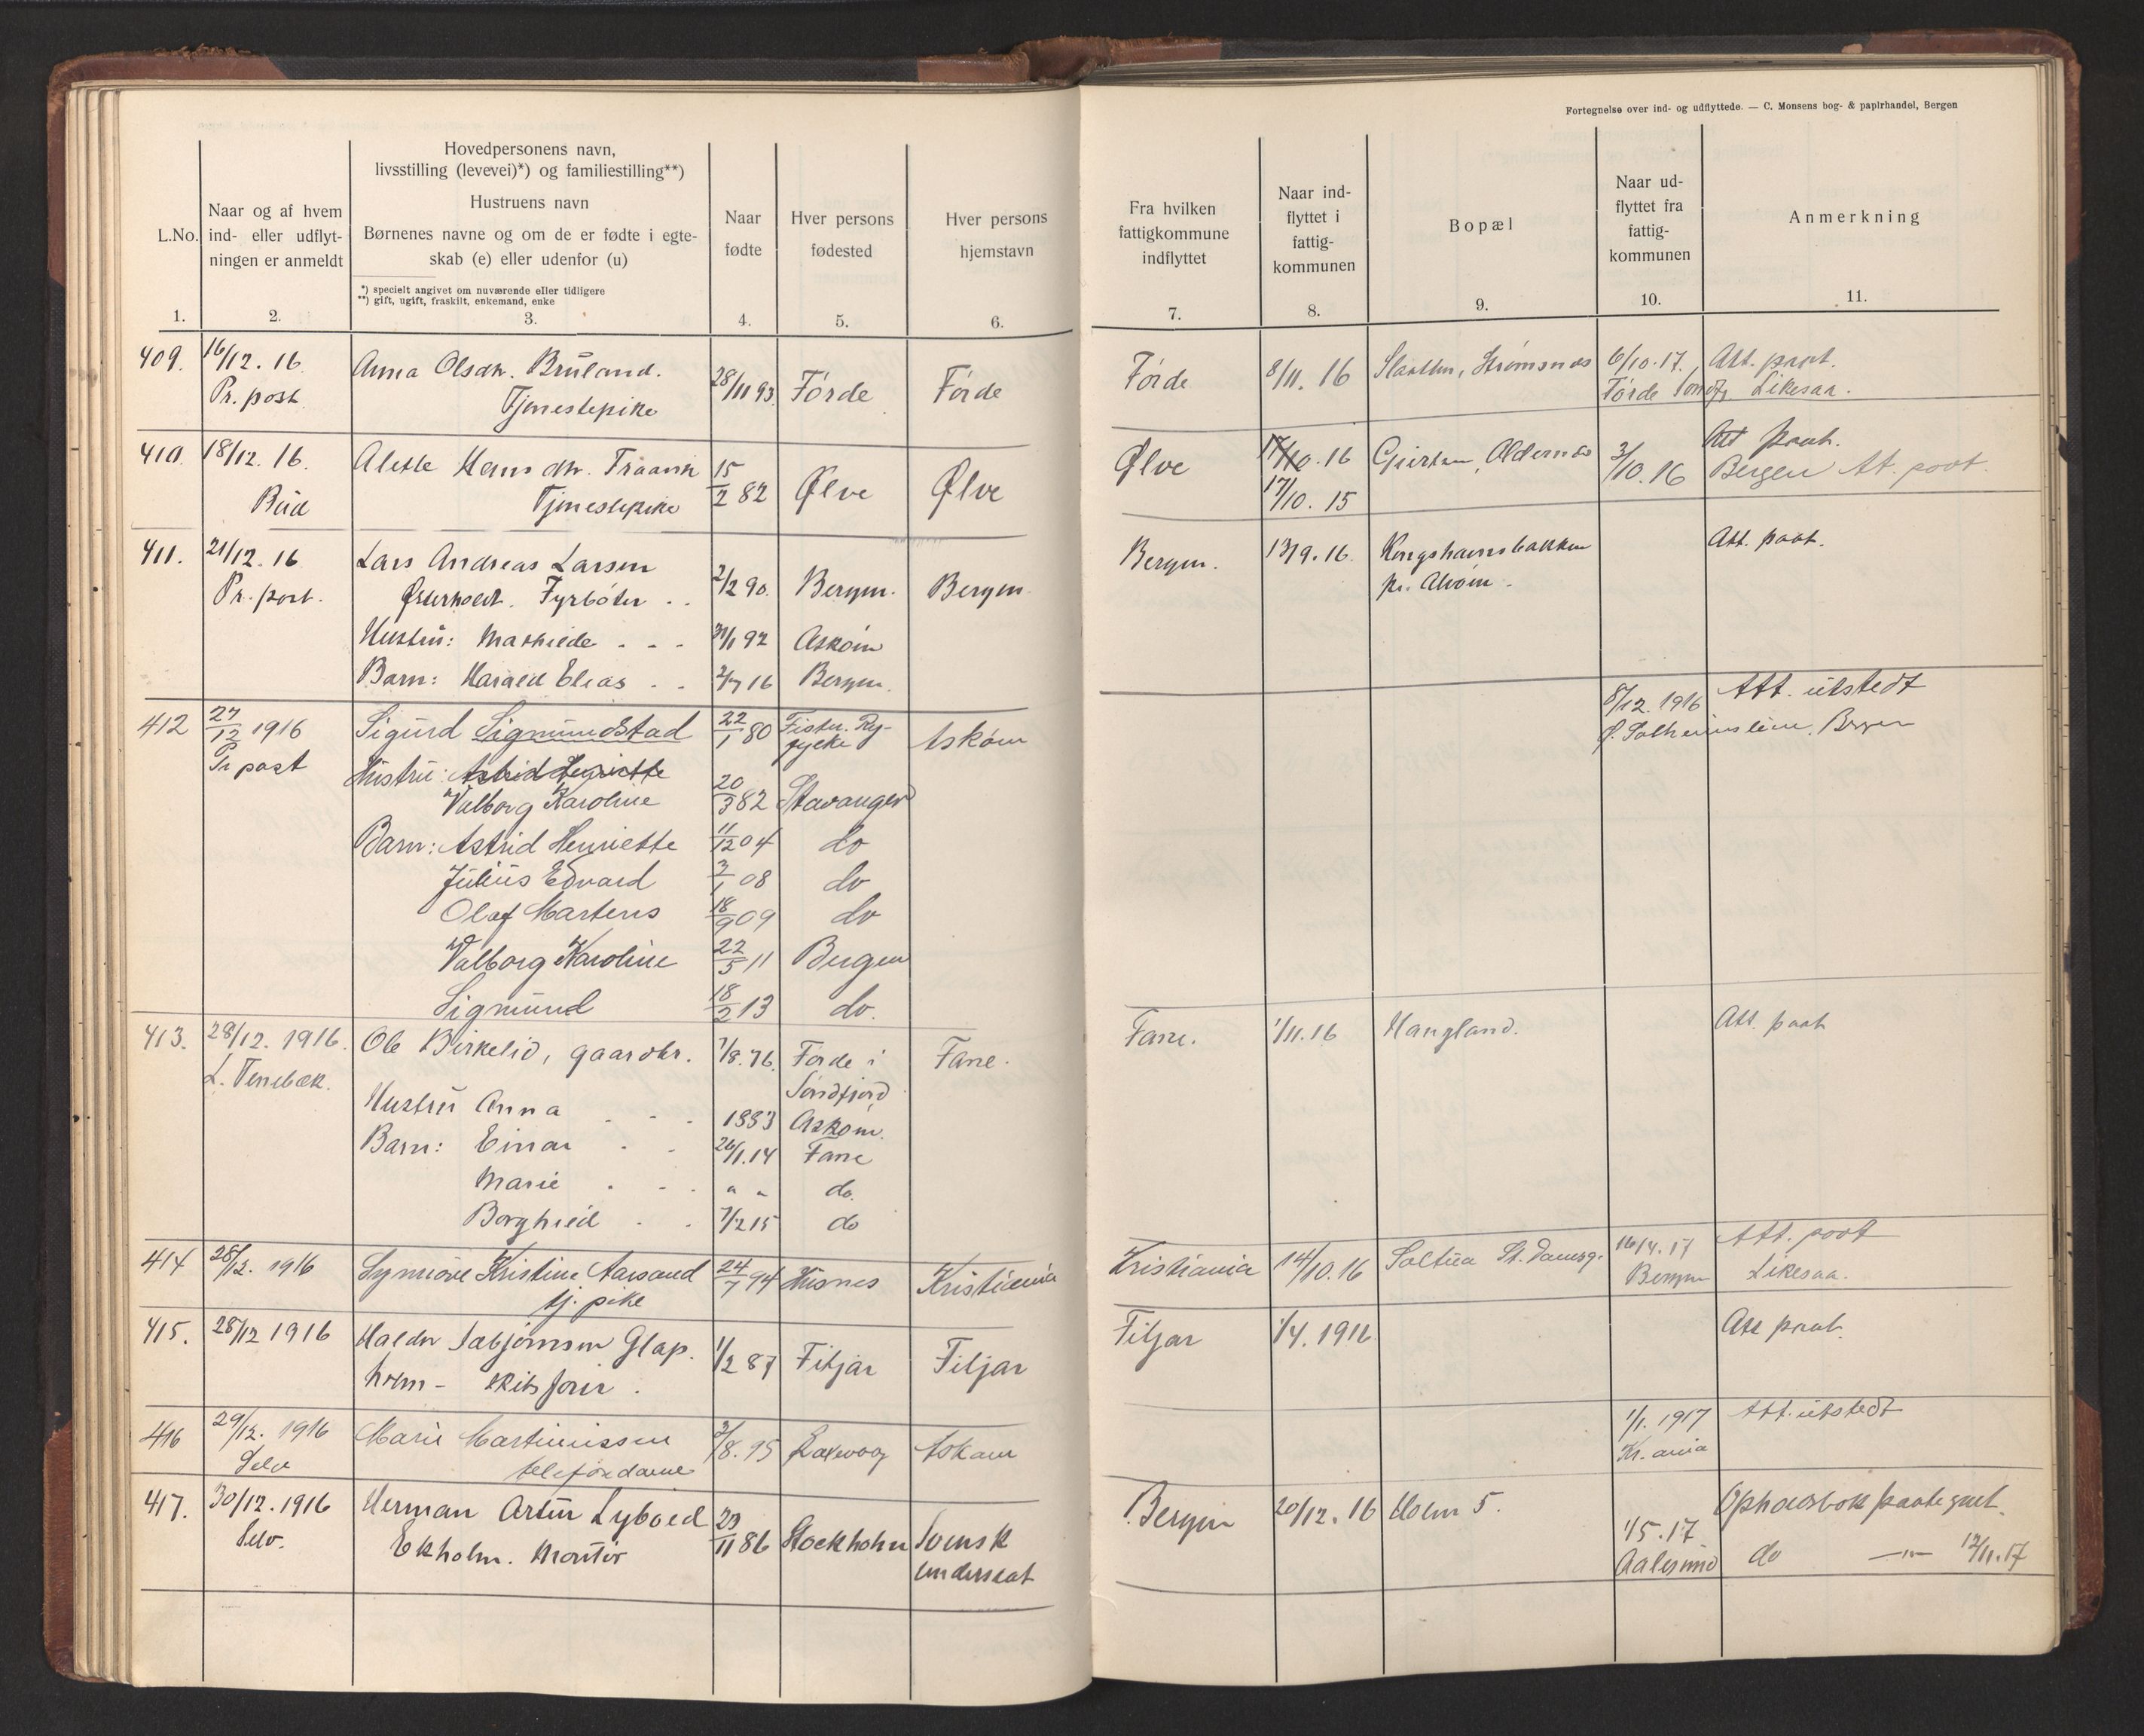 Fortegnelse over ind- og udflyttede. — C. Monsens bog- & papirhandel, Bergen
L.No.
1.
Naar og af hvem
ind- eller udflyt-
ningen er anmeldt
2.
Hovedpersonens navn,
livsstilling (levevei)*) og familiestilling**)
Hustruens navn
Børnenes navne og om de er fødte i egte-
skab (e) eller udenfor (u)
*) specielt angivet om nuværende eller tidligere
**) gift, ugift, fraskilt, enkemand, enke
3.
Naar
fødte
4.
Hver persons
fødested
5.
Hver persons
hjemstavn
6.
Fra hvilken
fattigkommune
indflyttet
7.
Naar ind-
flyttet i
fattig-
kommunen
8.
Bopæl
9.
Naar ud-
flyttet fra
fattig-
kommunen
10.
Anmerkning
11.
409. 16/12. 16 Anna Olsdtr. Bruland. 28/11 93 Førde Førde Førde 8/11. 16 Strømsnes 6/10.17. Att. paat.
Pr. post Tjenestepike Førde Likesaa.
410 18/12. 16. Alette Hansdtr. 15/2 82 Ølve Ølve Ølve 17/10. 16 3/10. 16 Att paat.
Bud Tjenestepike 17/10. 15 Bergen At. paat.
411. 21/12. 16 Lars Andreas Larsen 2/2 90. Bergen. Bergen. Bergen. 13/9. 16. Kongshavnsbakken Att. paat.
Pr. post. Østerholdt. Fyrbøter . . pr. Alvøen.
Hustru: Mathilde . - - 31/1 92 Askøen
Barn: Harald Elias . . 2/7 16 Bergen.
412 27/12 1916 Sigurd Sigmundstad 22/1 80 Fister. Ry- Askøen 8/12. 1916 Att. utstedt
Pr post fylke Solheimslien, Bergen
Hustru: Astrid Henriette
Valborg Karoline 20/3 82 Stavanger
Barn: Astrid Henriette 11/12 04 do
Julius Edvard 3/1 08 do
Olaf Martens 18/9 09 do
Valborg Karoline 22/5 11 Bergen
Sigmund 18/2 13 do.
413. 28/12. 1916. Ole Birkelid, gaardbr. 7/8. 76. Førde i Fane. Fane. 1/11. 16 Haugland. Att. paat
L. Tenebæk. Søndfjord
Hustru Anna . - - 1883 Askøen.
Barn: Einar . . 26/1. 14 Fane
Marie . - - " " do.
Borghild . . 7/2 15 do
414 28/12. 1916 Synnøve Kristine Aarsand 24/7 94 Husnes Kristiania Kristiania 14/10. 16 St. Damsg. 16/4. 17 Att. paat
tj. pike Bergen Likesaa.
415. 28/12 1916 Halder Glap. 1/2 87 Fitjar Fitjar Fitjar 1/4. 1916 Att paat.
holm -
416 29/12. 1916 Marie Martinussen 3/8. 95 Laxevaag Askøen 1/1. 1917 Att. utstedt
Selv telefondame Kr.ania
417. 30/12. 1916 Herman Artur Lybold 29/11 86 Stockholm Svensk Bergen 20/12. 16 Holm 5. Opholdsbok paategnet.
Selv. Ekholm. Montør undersaat 1/5. 17
Aalesund do —"— 12/11. 17